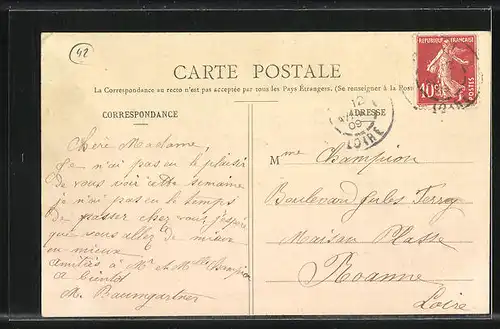 42
CARTE POSTALE
La Correspondance au recto n'est pas acceptée par tous les Pays Étrangers. (Se renseigner à la Poste
CORRESPONDANCE
ADRESSE
REPUBLIQUE FRANÇAISE
10c
POSTES
12
09
LOIRE
LOIRE
Chère Madame,
Je n'ai pas eu le plaisir
de vous voir cette semaine
je n'ai pas eu le temps
de passer chez vous j'espère
que vous allez de mieux
en mieux
amitiés à Mr et Melles Champion
A bientôt
M. Baumgartner
Mme Champion
Boulevard Jules Ferry
Maison Plasse
Roanne
Loire